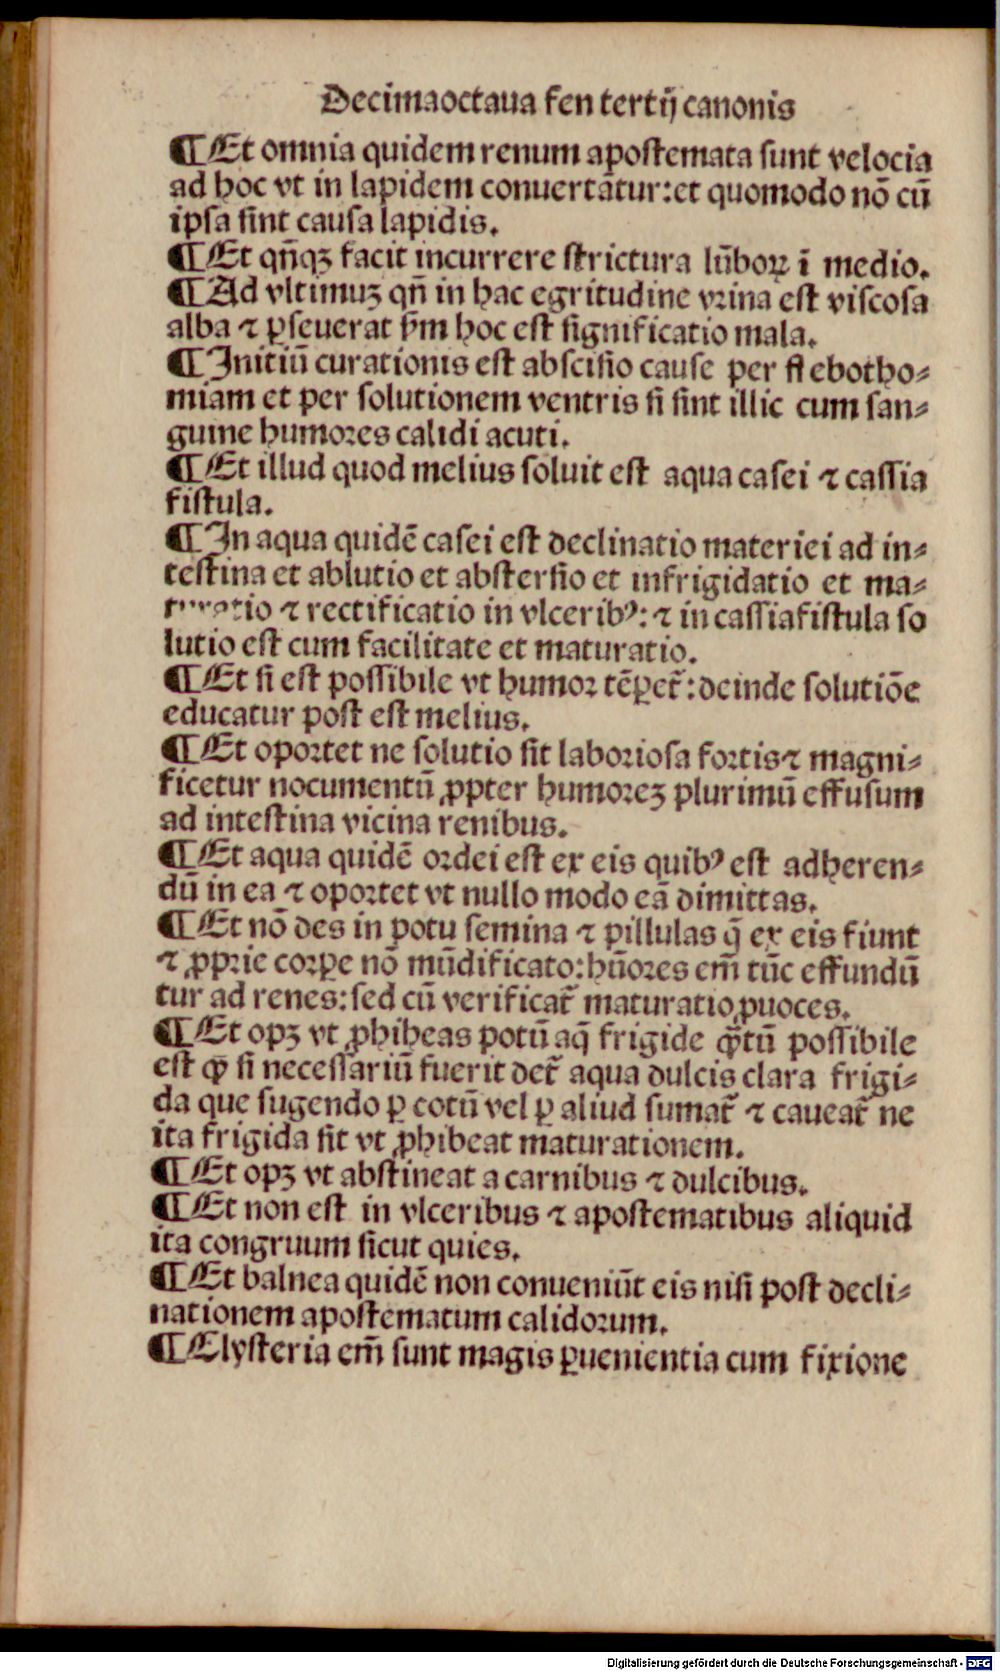 Decimaoctaua fen tertij canonis
¶Et omnia quidem renum apostemata sunt velocia
ad hoc vt in lapidem conuertātur: et quomodo nō cū
ipsa sint causa lapidis.
¶Et qn̄qꝫ facit incurrere strictura lūboꝝ ī medio.
¶Ad vltimuꝫ qn̄ in hac egritudine vrina est viscosa
alba ⁊ ꝑseuerat ẜm hoc est significatio mala.
¶Initiū curationis est abscisio cause per flebotho⸗
miam et per solutionem ventris si sint illic cum san⸗
guine humores calidi acuti.
¶Et illud quod melius soluit est aqua casei ⁊ cassia
fistula.
¶In aqua quidē casei est declinatio materiei ad in⸗
testina et ablutio et abstersio et infrigidatio et ma⸗
turatio ⁊ rectificatio in vlceribꝰ: ⁊ in cassiafistula so
lutio est cum facilitate et maturatio.
¶Et si est possibile vt humor tēꝑet̄: deinde solutiōe
educatur post est melius.
¶Et oportet ne solutio sit laboriosa fortis ⁊ magni⸗
ficetur nocumentū ꝓpter humoreꝫ plurimū effusum
ad intestina vicina renibus.
¶Et aqua quidē ordei est ex eis quibꝰ est adheren⸗
dū in ea ⁊ oportet vt nullo modo eā dimittas.
¶Et nō des in potu semina ⁊ pillulas q̄ ex eis fiunt
⁊ ꝓprie corꝑe nō mūdificato: hūores em̄ tūc effundū
tur ad renes: sed cū verificat̄ maturatio ꝓuoces.
¶Et opꝫ vt ꝓhibeas potū aq̄ frigide q̄ꝫtū possibile
est qꝫ si necessariū fuerit det̄ aqua dulcis clara frigi⸗
da que sugendo ꝑ cotū vel ꝑ aliud sumat̄ ⁊ caueat̄ ne
ita frigida sit vt ꝓhibeat maturationem.
¶Et opꝫ vt abstineat a carnibus ⁊ dulcibus.
¶Et non est in vlceribus ⁊ apostematibus aliquid
ita congruum sicut quies.
¶Et balnea quidē non conueniūt eis nisi post decli⸗
nationem apostematum calidorum.
¶Clysteria em̄ sunt magis ꝑuenientia cum fixione
Digitalisierung gefördert durch die Deutsche Forschungsgemeinschaft - DFG